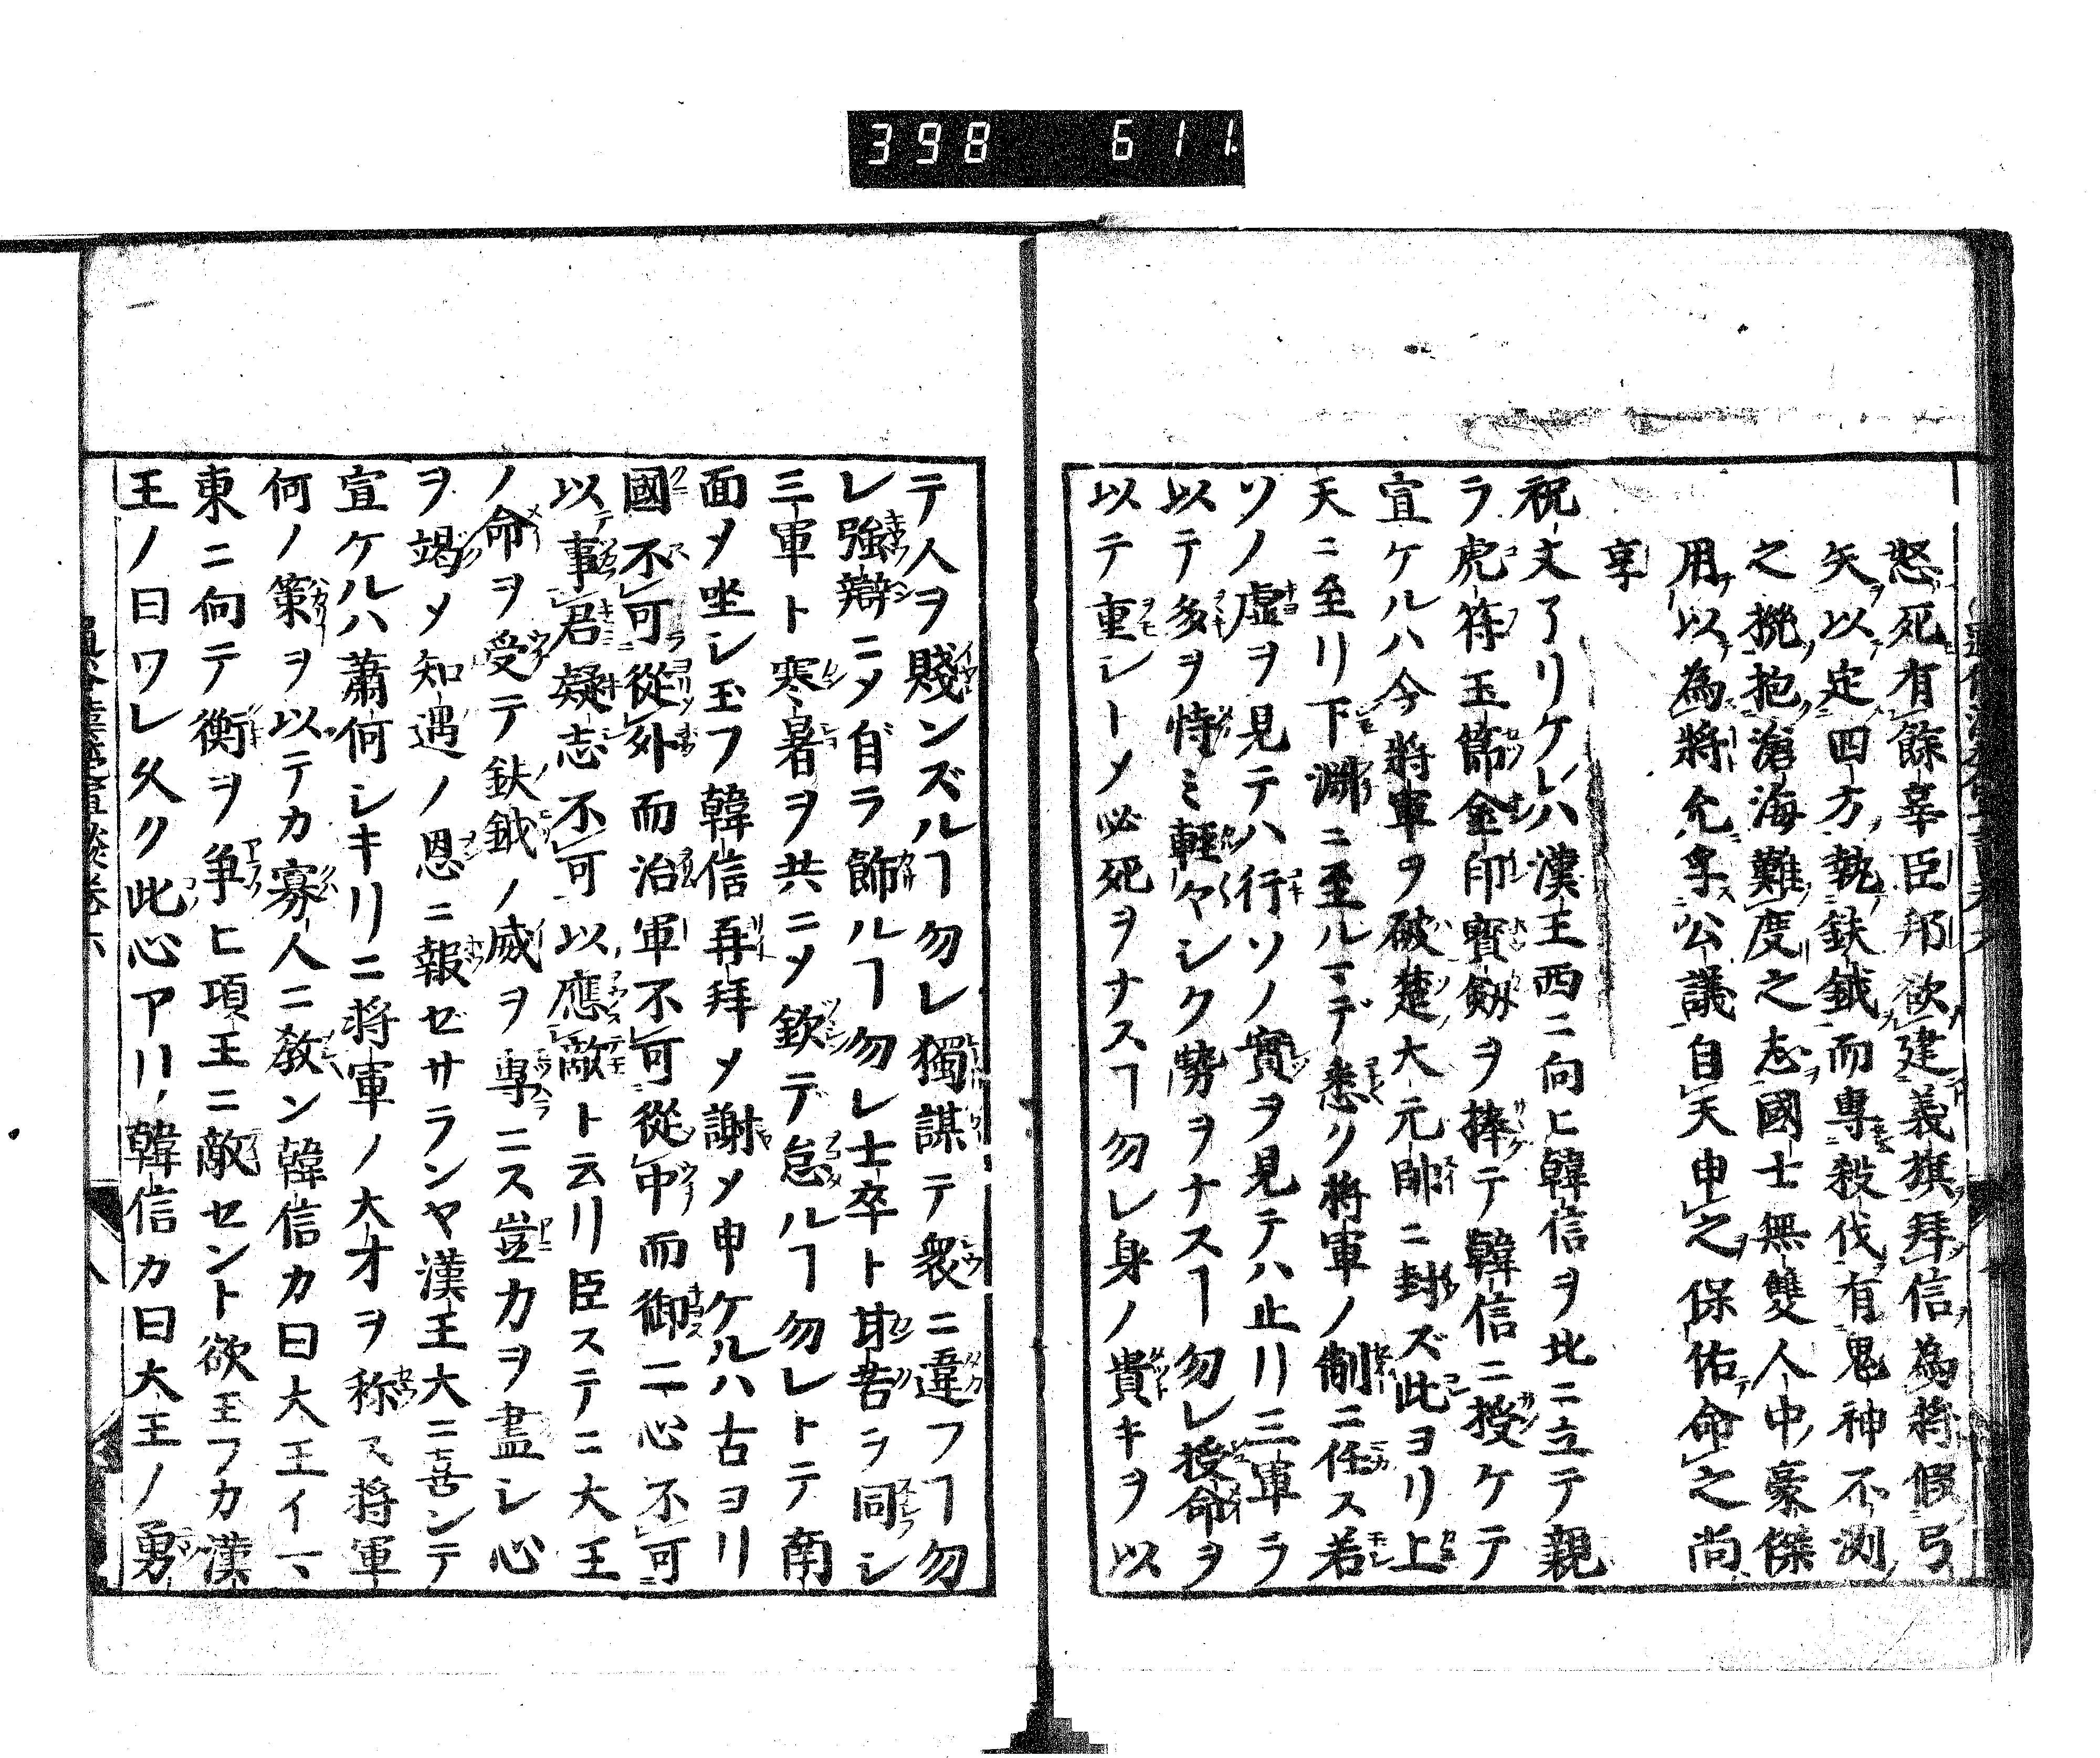 398 611
怒死有餘辜臣邦欲建義旗拜信為將假弓
矢以定四方執鈇鉞而專殺伐有鬼神不測
之機抱滄海難度之志國士無雙人中豪傑
用以為將允孚公議自天申之保佑命之尚
享
祝文了リケレハ漢王西ニ向ヒ韓信ヲ北ニ立テ親
ラ虎符玉節金印寳劔ヲ捧テ韓信ニ授ケテ
宣ケルハ今將軍ヲ破楚大元帥ニ封ズ此ヨリ上
天ニ至リ下淵ニ至ルマデ悉ク將軍ノ制ニ任ス若
ソノ虚ヲ見テハ行ソノ實ヲ見テハ止リ三軍ラ
以テ多ヲ恃ミ軽々シク勢ヲナスヿ勿レ授命ヲ
以テ重シトメ必死ヲナスヿ勿レ身ノ貴キヲ以
テ人ヲ賤ンズルヿ勿レ獨謀テ衆ニ違フヿ勿
レ強辯ニメ自ラ飾ルヿ勿レ士卒ト甘苦ヲ同シ
三軍ト寒暑ヲ共ニメ欽テ怠ルヿ勿レトテ南
面メ坐シ玉フ韓信再拜メ謝メ申ケルハ古ヨリ
國不可從外而治軍不可從中而御二心不可
以事君疑志不可以應敵ト云リ臣ステニ大王
ノ命ヲ受テ鈇鉞ノ威ヲ專ニス豈力ヲ盡シ心
ヲ竭メ知遇ノ恩ニ報ゼサランヤ漢王大ニ喜ンテ
宣ケルハ蕭何シキリニ將軍ノ大才ヲ称ス將軍
何ノ策ヲ以テカ寡人ニ教ン韓信カ曰大王イマ
東ニ向テ衡ヲ争ヒ項王ニ敵セント欲王フカ漢
王ノ曰ワレ久ク此心アリ韓信カ曰大王ノ勇